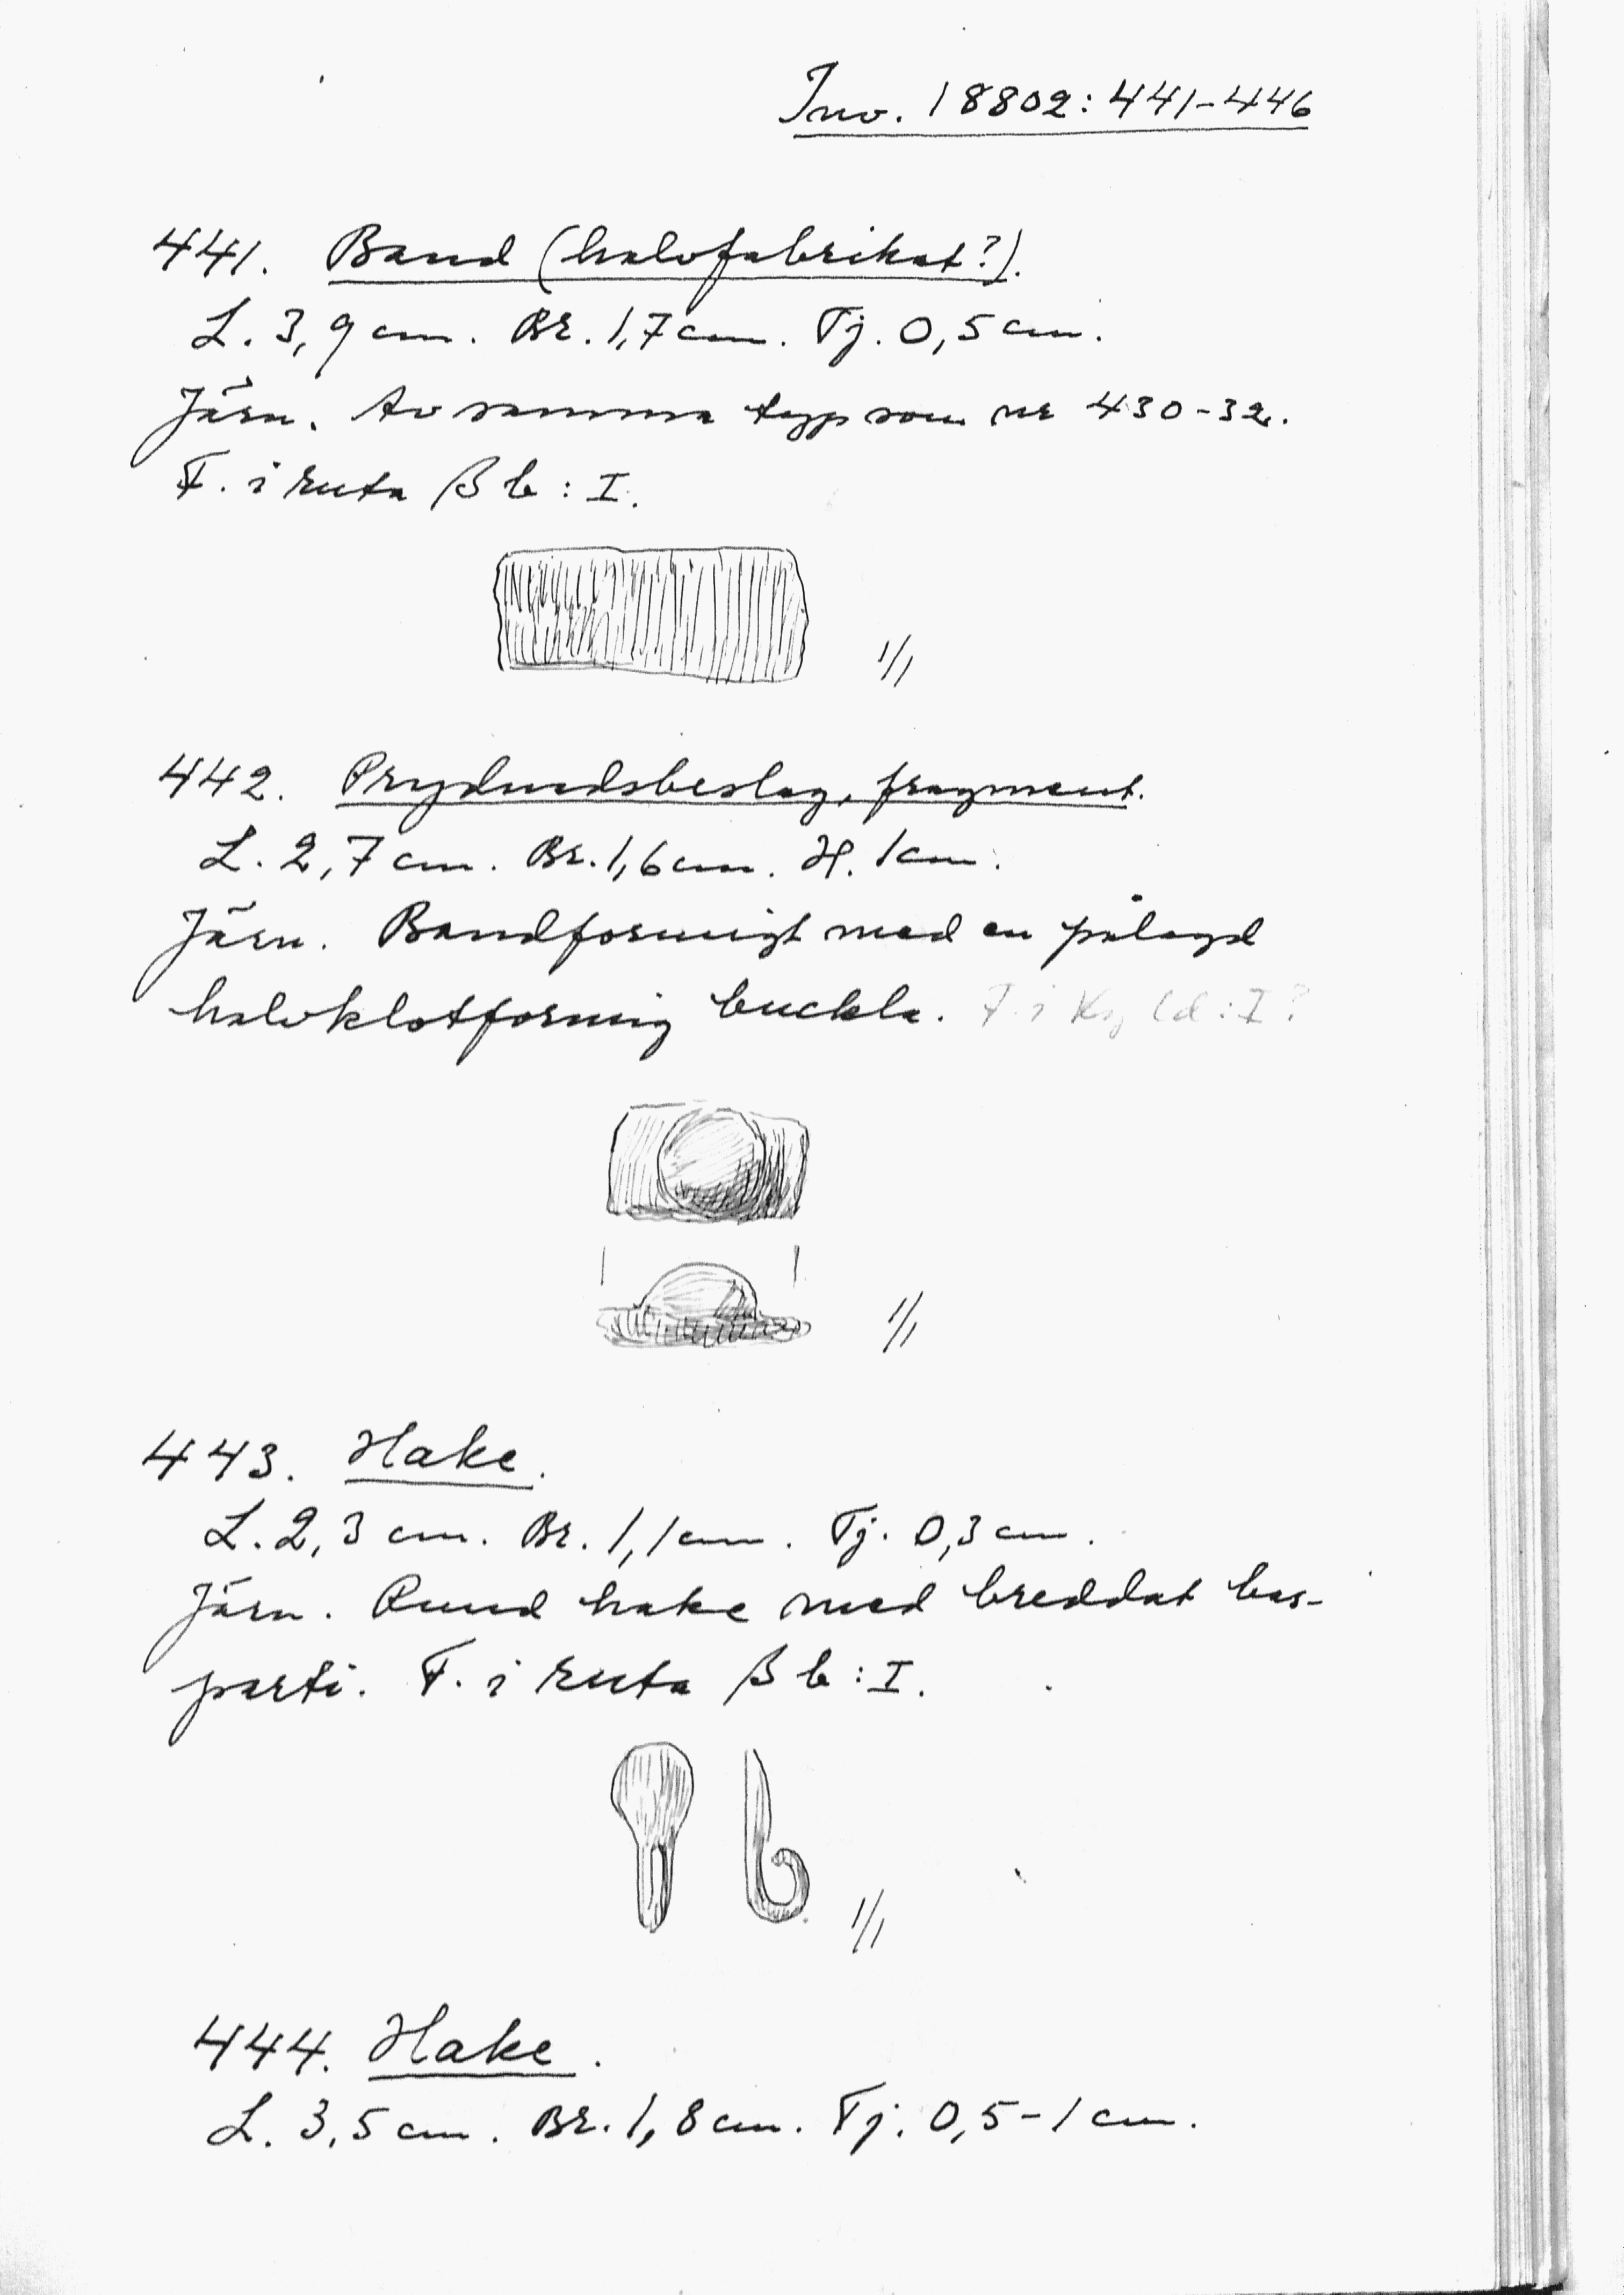 Inv. 18802:441-446
441. Band (halvfabrikat?).
L. 3,9 cm. Br. 1,7 cm. Tj. 0,5 cm.
Järn. Av samma typ som nr 430-32.
F. i ruta βb:I.
1/1
442. Prydnadsbeslag, fragment.
L. 2,7 cm. Br. 1,6 cm. H. 1 cm.
Järn. Bandformigt med en pålagd
halvklotformig buckla. F. i :I?
1/1
443. Hake.
L. 2,3 cm. Br. 1,1 cm. Tj. 0,3 cm.
Järn. Rund hake med breddat bas-
parti. F. i ruta βb:I.
1/1
444. Hake.
L. 3,5 cm. Br. 1,8 cm. Tj. 0,5-1 cm.